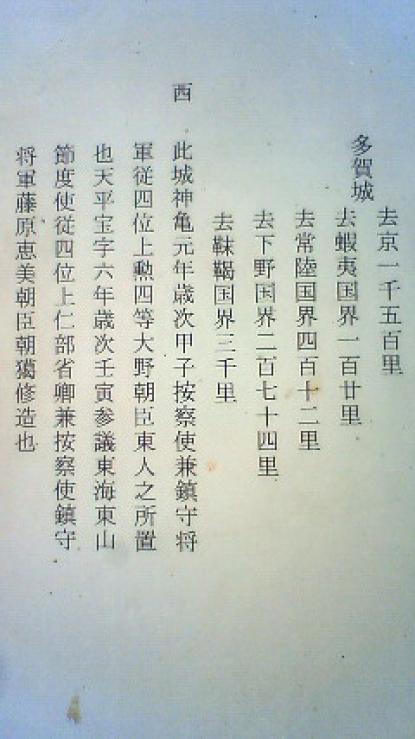 去京一千五百里
多賀城
去蝦夷国界一百廿里
去常陸国界四百十二里
去下野国界二百七十四里
去靺鞨国界三千里
西
此城神亀元年歳次甲子按察使兼鎮守将
軍従四位上勲四等大野朝臣東人之所置
也天平宝字六年歳次壬寅参議東海東山
節度使従四位上仁部省卿兼按察使鎮守
将軍藤原恵美朝臣朝獦修造也